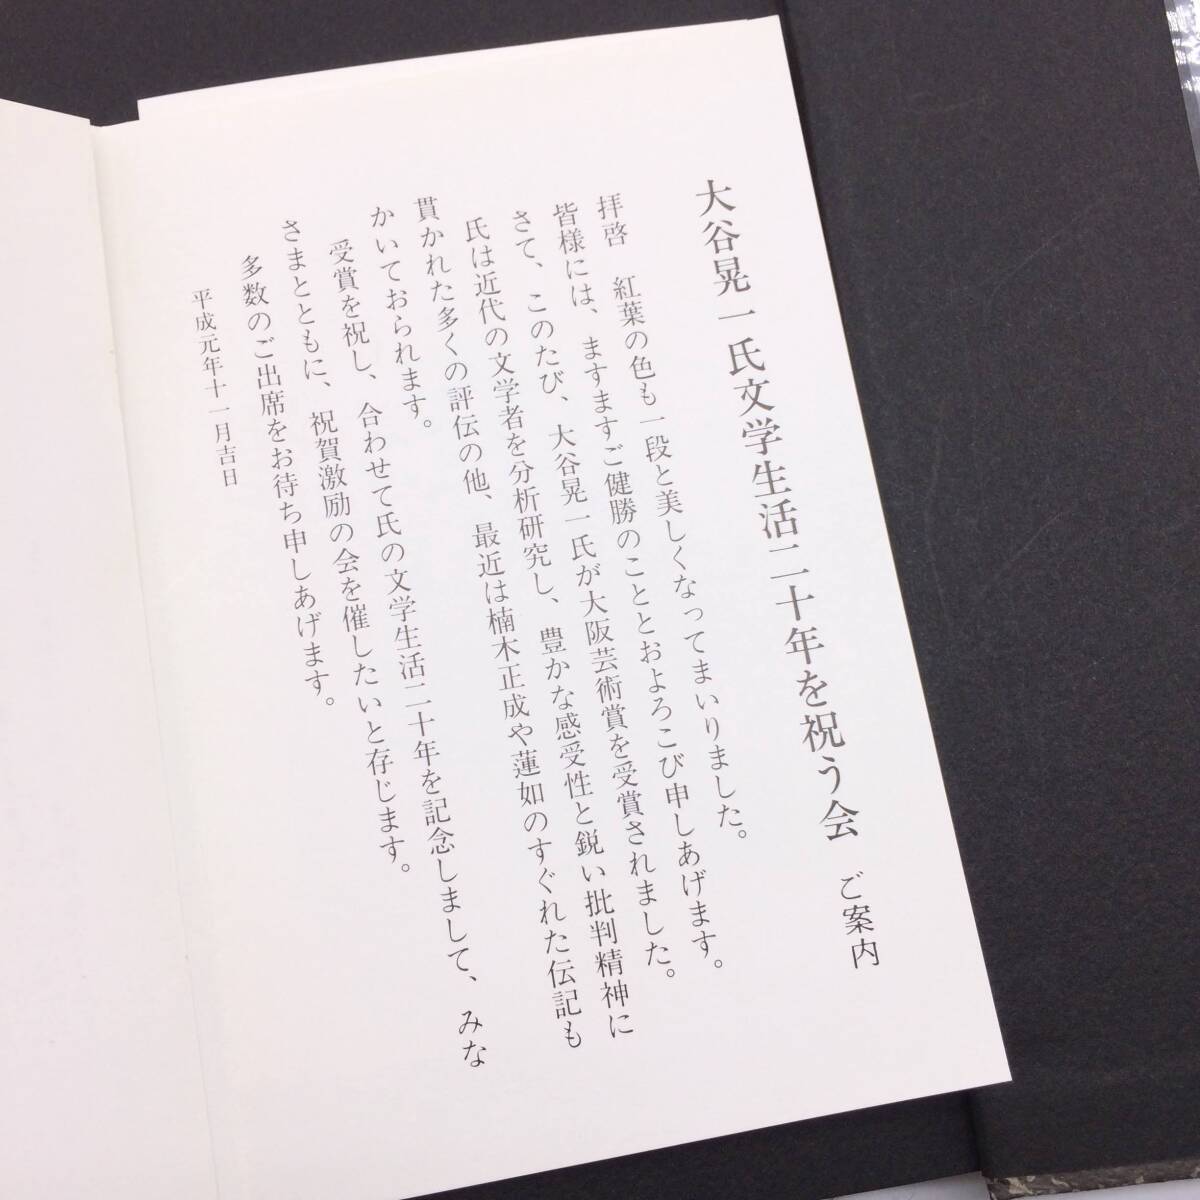 大谷晃一氏文学生活二十年を祝う会 ご案内
拝啓 紅葉の色も一段と美しくなってまいりました。
皆様には、ますますご健勝のこととおよろこび申しあげます。
さて、このたび、大谷晃一氏が大阪芸術賞を受賞されました。
氏は近代の文学者を分析研究し、豊かな感受性と鋭い批判精神に
貫かれた多くの評伝の他、最近は楠木正成や蓮如のすぐれた伝記も
かいておられます。
受賞を祝し、合わせて氏の文学生活二十年を記念しまして、みな
さまとともに、祝賀激励の会を催したいと存じます。
多数のご出席をお待ち申しあげます。
平成元年十一月吉日